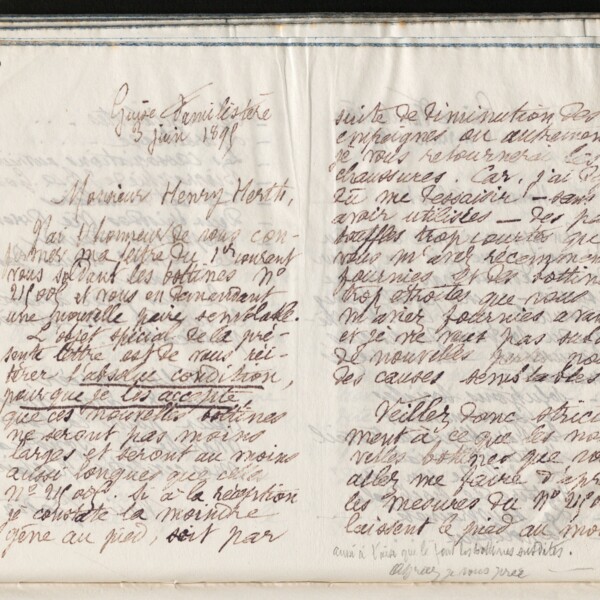 Guise Familistère
3 juin 1895
Monsieur Henry Herth,
J'ai l'honneur de vous con-
firmer ma lettre du 1er courant
vous soldant les bottines No
et vous en demandant
une nouvelle paire semblable.
L'objet spécial de la pré-
sente lettre est de vous réi-
térer l'absolue condition,
pour que je les accepte
que ces nouvelles bottines
ne seront pas moins
larges et seront au moins
aussi longues que celles
No Si à la réception
je constate la moindre
gêne au pied, soit par
suite de diminution des
empeignes ou autrement
je vous retournerai les
chaussures. Car, j'ai
dû me dessaisir — sans
avoir utilisées — des
souffles trop courtes que
vous m'avez
fournies et des bottines
trop étroites que vous
m'aviez fournies avant
et je ne veux pas subir
de nouvelles pour
des causes semblables
Veillez donc stricte
ment à ce que les nou
velles bottines que vous
allez me faire d'après
les mesures du No
laissent le pied au moins
aussi à l'aise que le font les bottines susdites.
je vous prie